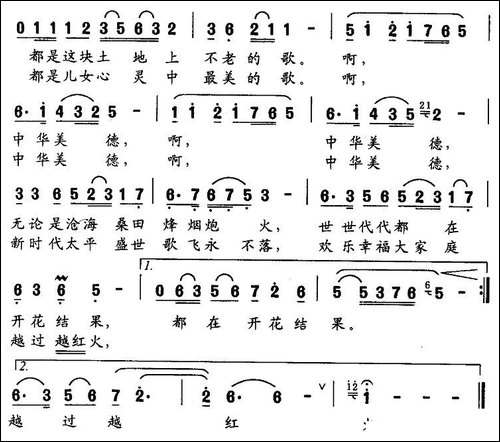 0 1 1 1 2 3 5 6 3 2 | 3 6 2 1 1 - | 5 1 2 1 7 6 5
都是这块土 地 上 不老的歌。 啊,
都是儿女心 灵 中 最美的歌。 啊,
6· 1 4 3 2 5 - | 1 1 2 1 7 6 5 | 6· 1 4 3 5 21 2 -
中华美 德, 啊, 中华美 德,
中华美 德, 啊, 中华美 德,
3 3 6 5 2 3 1 7 | 6· 7 6 7 5 3 - | 6 3 5 6 5 2 3 1 7
无论是沧海 桑田 烽烟炮 火, 世世代代都 在
新时代太平 盛世 歌飞永 不落, 欢乐幸福大家 庭
1.
6 3 6 5 - | 0 6 3 5 6 7 2 6 | 5 5 3 7 6 6 5 - :||
开花结 果, 都在开花结 果。
越过越红火,
2.
6· 3 5 6 7 2· | 2 6· 6 - ∨ | 12 1 -
越 过 越 红